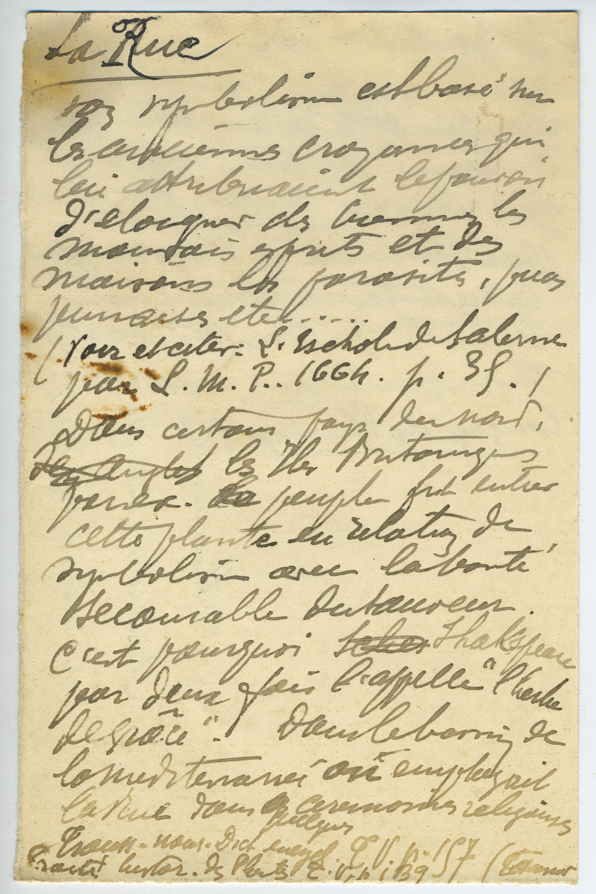 La Rue
son symbolisme est basé sur
les anciennes croyances qui
lui attribuaient le pouvoir
d'eloigner des hommes les
mauvais esprits et des
maisons les parasites, puces
punaises etc.....
(Voir et citer: L. Eschole de Salerne
par L. M. P.. 1664. p. 35.)
Dans certains pays du nord,
les Iles Britaniques
par ex. le peuple fit entrer
cette plante en relation de
symbolisme avec la bonté
secourable du sauveur.
C'est pourquoi Shakspeare
par deux fois l'appelle "l'herbe
de grâce". Dans le bassin de
la mediterranée on employait
la Rue dans quelques ceremonies religieuses
Dict. encycl. T. V. p. 157
Traité histor. des Plantes T. V. p. 189